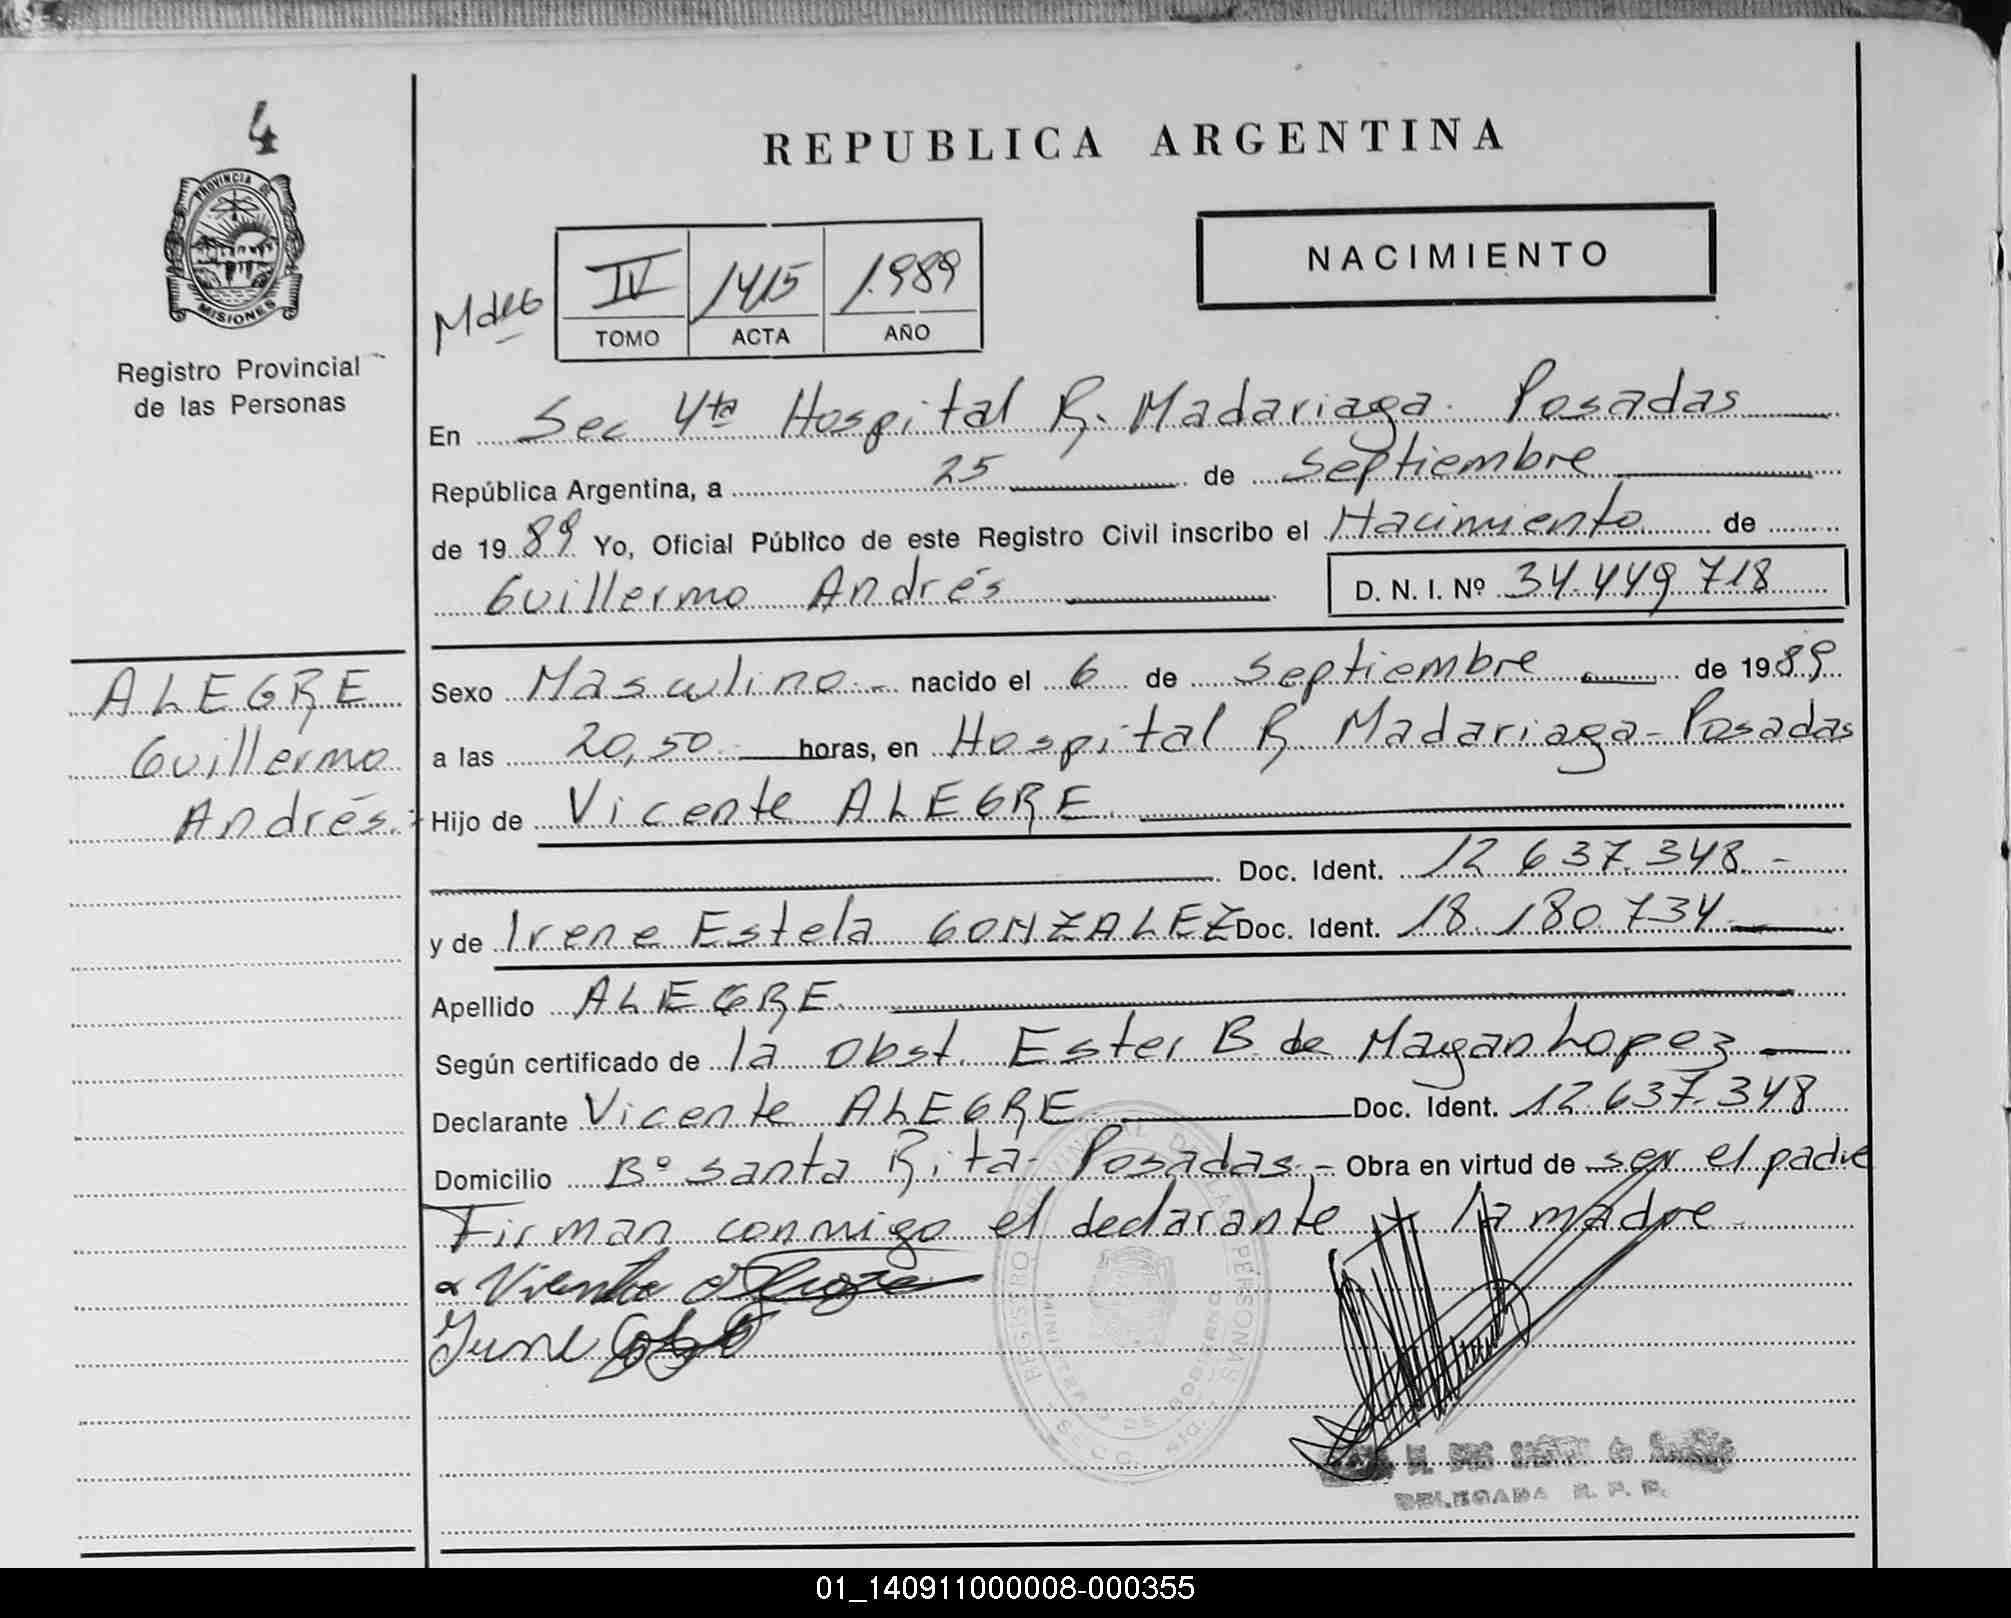 4
REPUBLICA ARGENTINA
PROVINCIA DE
MISIONES
Registro Provincial
de las Personas
NACIMIENTO
IV 1415 1.989
TOMO ACTA AÑO
En Sec 4ta Hospital R. Madariaga. Posadas
República Argentina, a 25 de Septiembre
de 1989 Yo, Oficial Público de este Registro Civil inscribo el Nacimiento de
Guillermo Andrés D. N. I. Nº 34.449.718
ALEGRE
Guillermo
Andrés.-
Sexo Masculino.- nacido el 6 de Septiembre de 1989
a las 20,50 horas, en Hospital R Madariaga-Posadas
Hijo de Vicente ALEGRE.
Doc. Ident. 12.637.348.-
y de Irene Estela GONZALEZ Doc. Ident. 18.180.734.
Apellido ALEGRE
Según certificado de la Obst. Ester B. de Mayan Lopez
Declarante Vicente ALEGRE Doc. Ident. 12.637.348
Domicilio Bº Santa Rita- Posadas.- Obra en virtud de ser el padre
Firman conmigo el declarante y la madre
REGISTRO PROVINCIAL DE LAS PERSONAS
DELEGADA R. P. P.
01_140911000008-000355